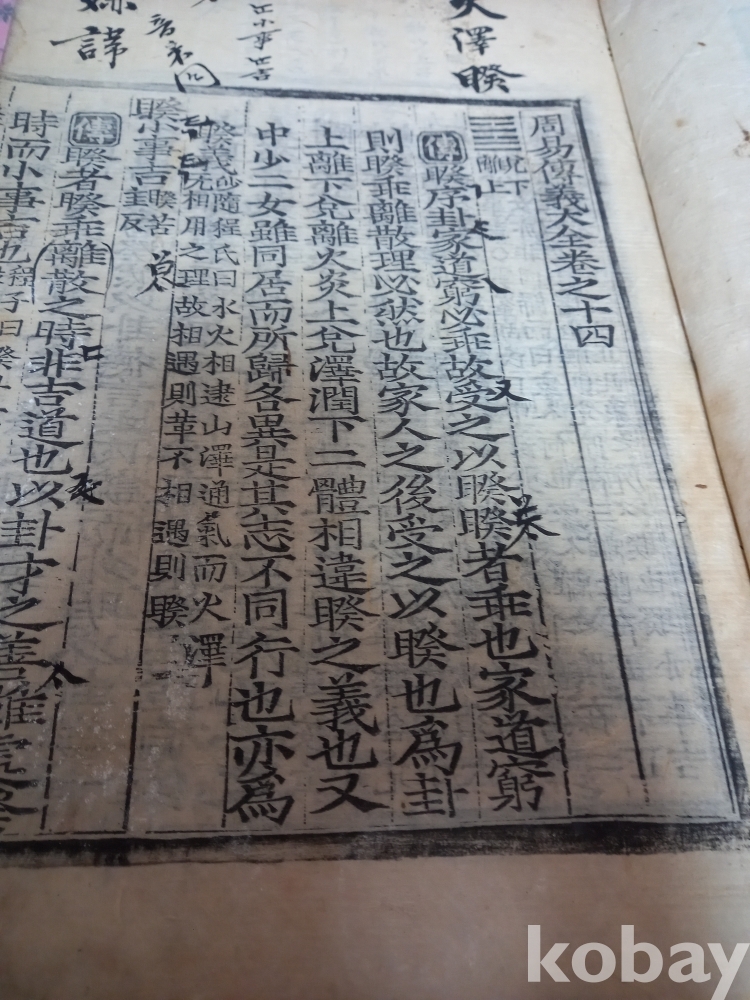 火澤睽
周易傳義大全卷之十四
兌下
離上
傳睽序卦家道窮必乖故受之以睽睽者乖也家道窮
則睽乖離散理必然也故家人之後受之以睽也爲卦
上離下兌離火炎上兌澤潤下二體相違睽之義也又
中少二女雖同居而所歸各異是其志不同行也亦爲
睽義
沙隨程氏曰水火相逮山澤通氣而火澤
无相用之理故相遇則革不相遇則睽
睽小事吉
睽苦
圭反
傳睽者睽乖離散之時非吉道也以卦才之善雖處睽
時而小事吉也
程子曰睽
kobay